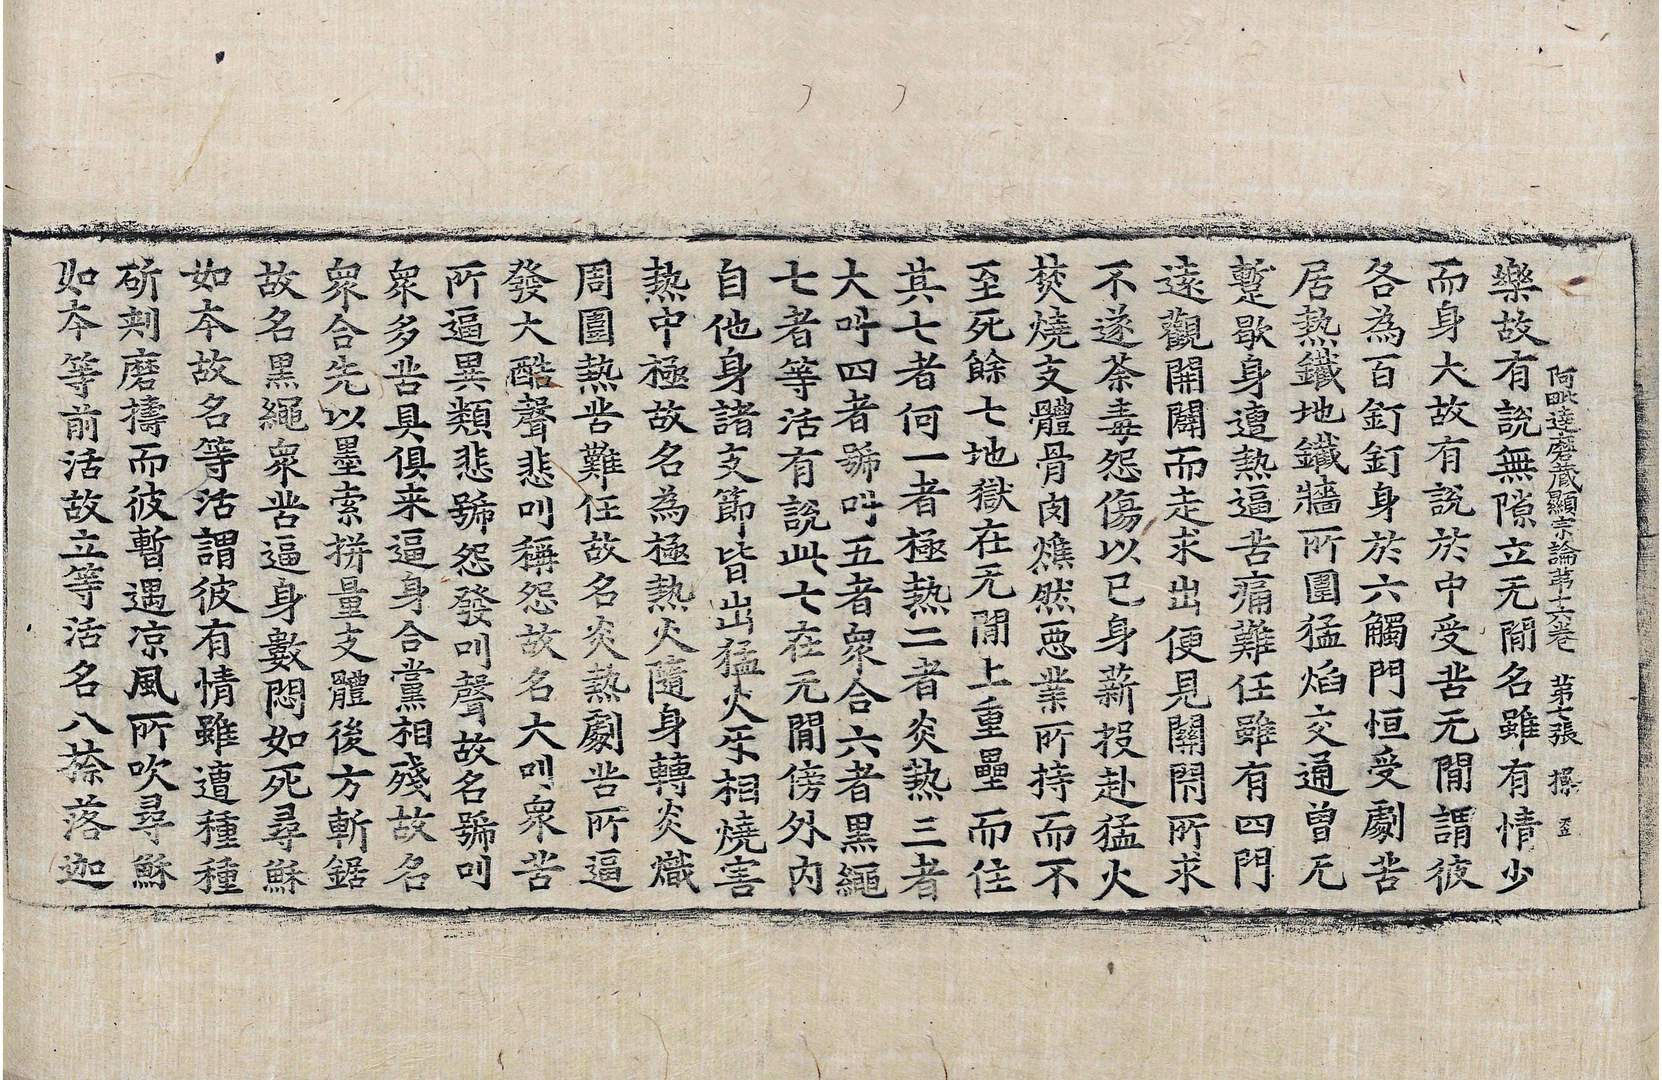 阿毗達磨蔵顯宗論苐十六卷　苐七張　操　五
樂故有說無隙立无間名雖有情少
而身大故有說於中受苦无間謂彼
各為百釘釘身於六觸門恒受劇苦
居熱鐵地鐵牆所圍猛焰交通曾无
蹔歇身遭熱逼苦痛難任雖有四門
遠觀開闢而走求出便見關閇所求
不遂荼毒怨傷以已身薪投赴猛火
焚燒支體骨肉燋然惡業所持而不
至死餘七地獄在无間上重壘而住
其七者何一者極熱二者炎熱三者
大叫四者號叫五者衆合六者黑繩
七者等活有說此七在无間傍外內
自他身諸支節皆出猛火牙相燒害
熱中極故名為極熱火隨身轉炎熾
周圍熱苦難任故名炎熱劇苦所逼
發大酷聲悲叫稱怨故名大叫衆苦
所逼異類悲號怨發叫聲故名號叫
衆多苦具俱来逼身合黨相殘故名
衆合先以墨索拼量支體後方斬鋸
故名黑繩衆苦逼身數悶如死尋穌
如本故名等活謂彼有情雖遭種種
斫刺磨擣而彼暫遇凉風所吹尋穌
如本等前活故立等活名八捺落迦